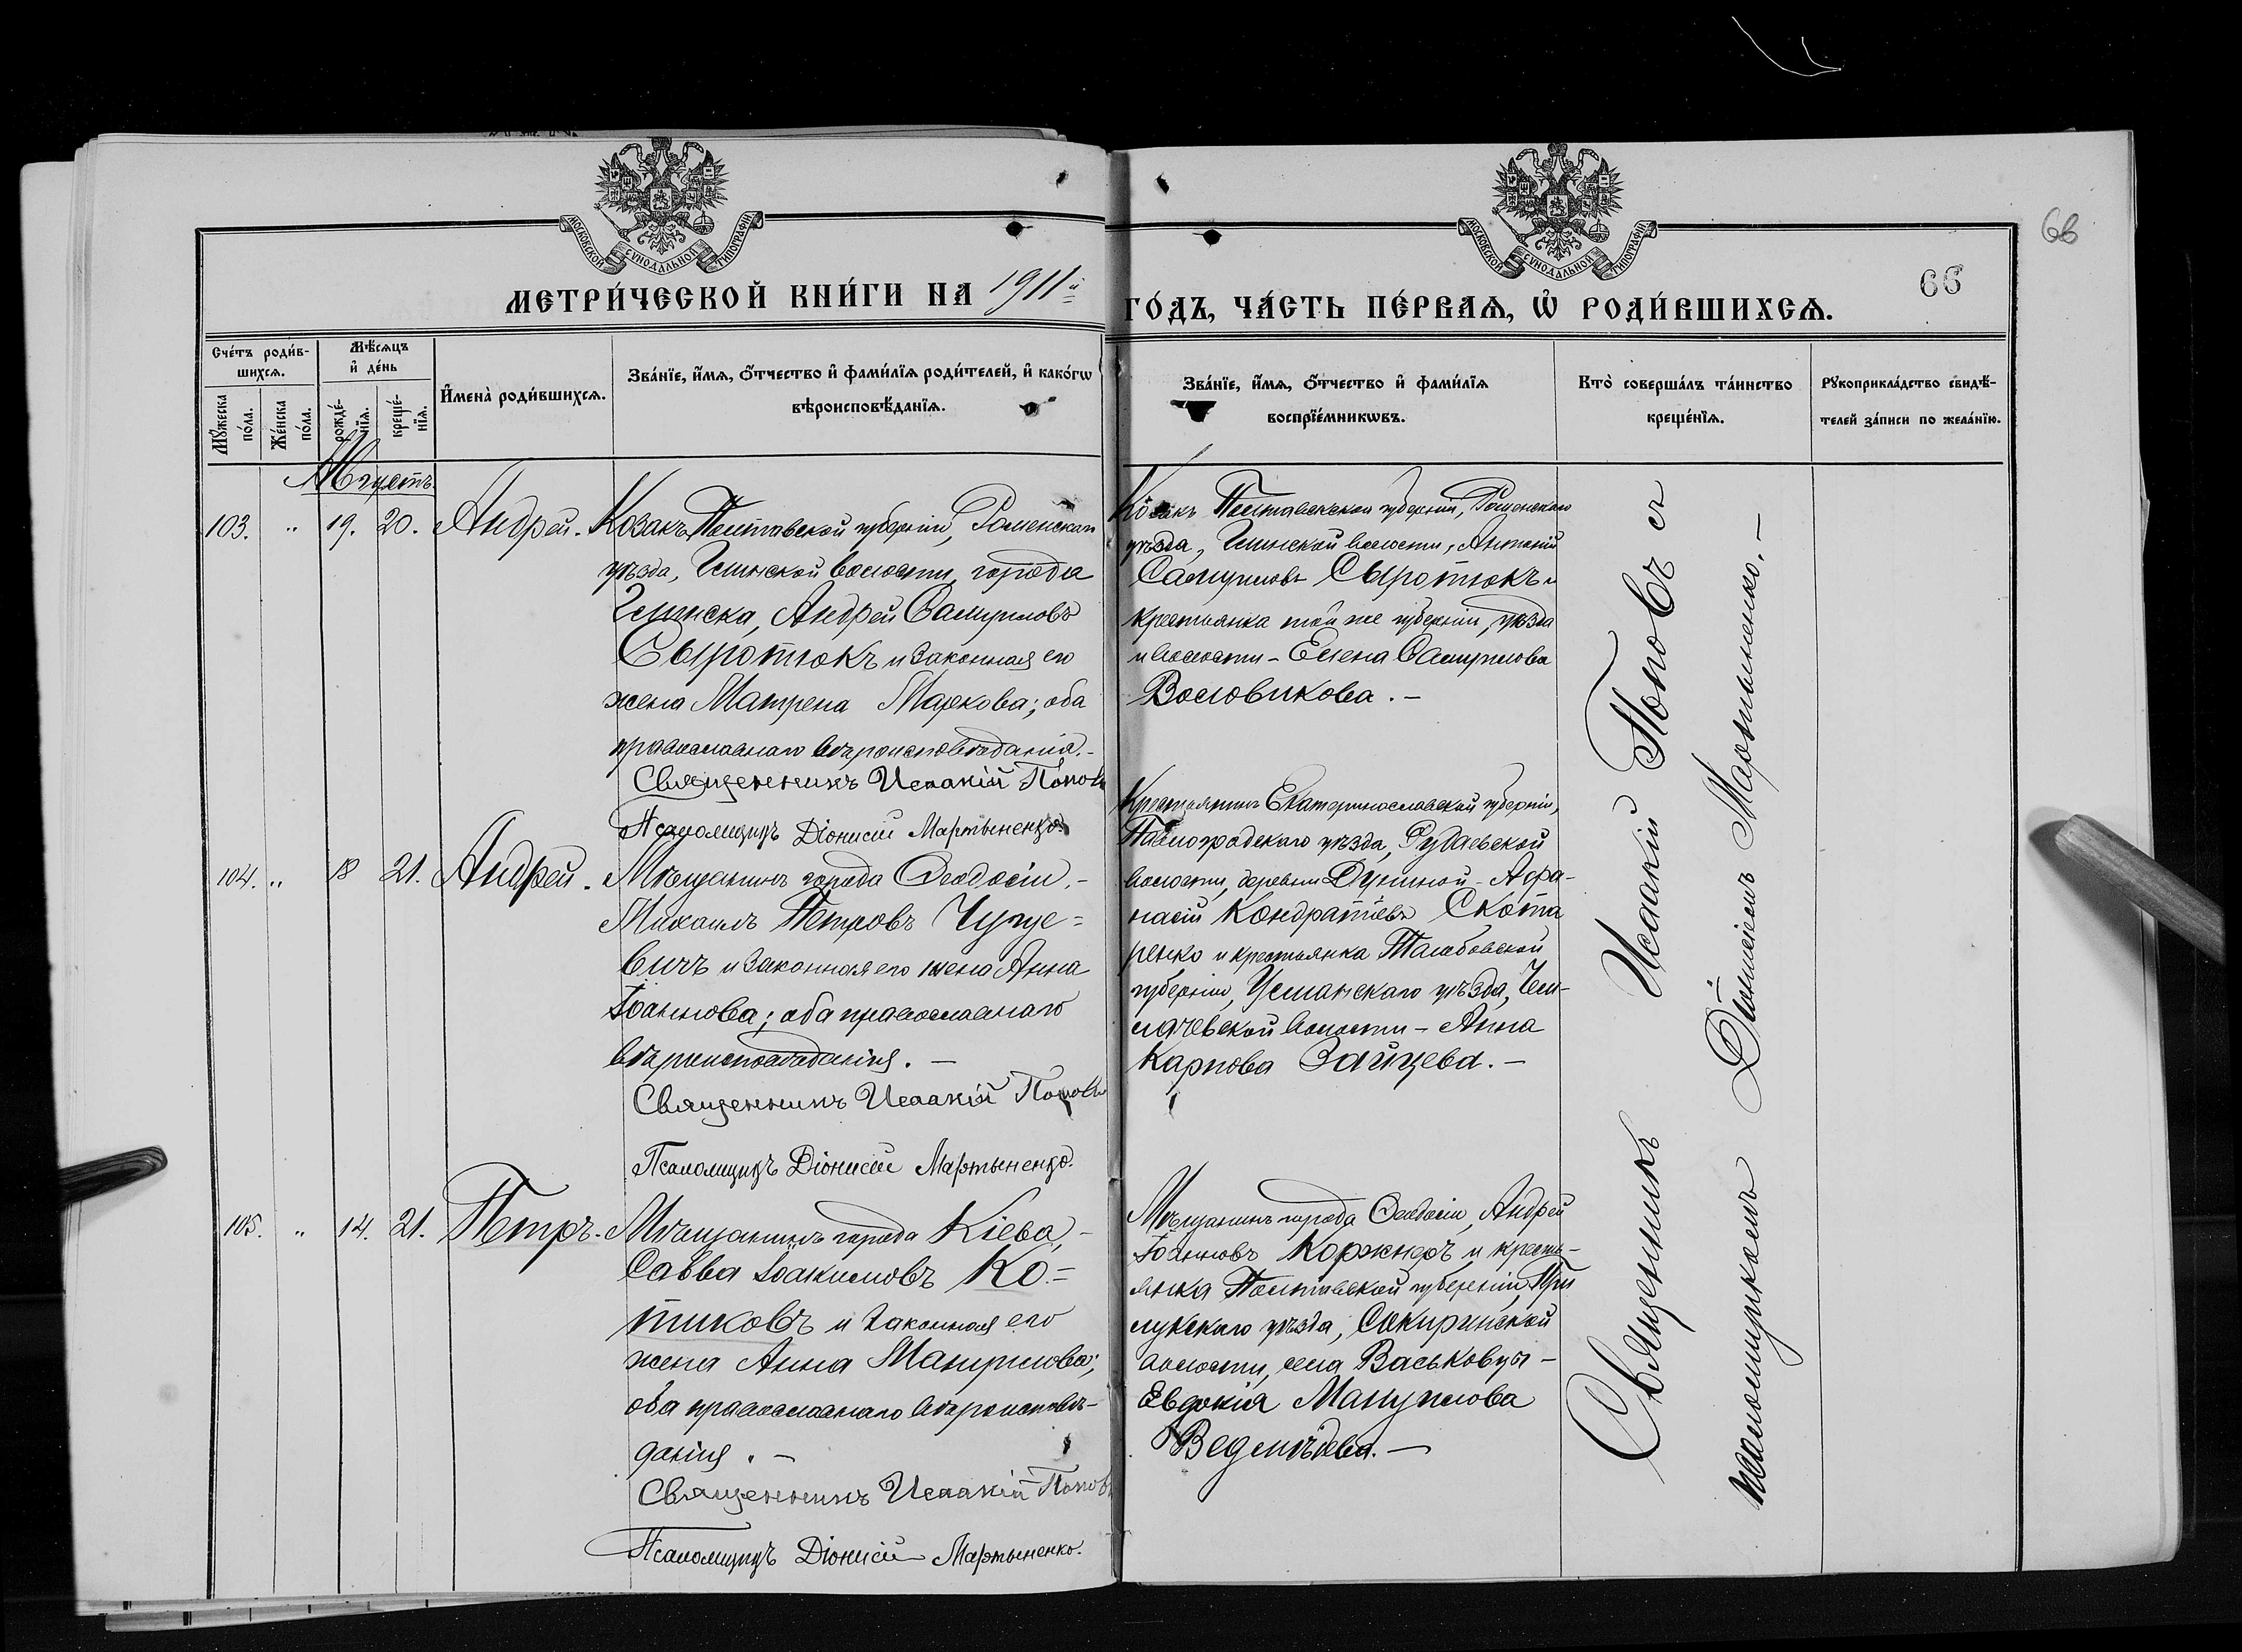 66
66
МОСКОВСКОЙ СУНОДАЛЬНОЙ ТИПОГРАФІИ
МОСКОВСКОЙ СУНОДАЛЬНОЙ ТИПОГРАФІИ
МЕТРИ́ЧЕСКОЙ КНИ́ГИ НА 1911й
ГО́ДЪ, ЧА́СТЬ ПЕ́РВАѦ, Ѡ҆ РОДИ́ВШИХСѦ.
Сче́тъ роди́в-
шихсѧ.
Мꙋ́жеска по́ла.
Же́нска по́ла.
Мѣ́сѧцъ
и҆ де́нь
рожде́-нїѧ.
креще́-нїѧ.
И҆мена̀ роди́вшихсѧ.
Зва́нїе, и҆́мѧ, ѻ҆́тчество и҆ фами́лїѧ роди́телей, и҆ како́гѡ
вѣроисповѣ́данїѧ.
Зва́нїе, и҆́мѧ, ѻ҆́тчество и҆ фами́лїѧ
воспрїе́мникѡвъ.
Кто̀ соверша́лъ та́инство
креще́нїѧ.
Рꙋкоприкла́дство свидѣ́-
телей за́писи по жела́нїю.
Августъ
103. " 19. 20. Андрей. Козакъ Полтавской губерніи, Роменскаго
уѣзда, Глинской волости, города
Глинска, Андрей Самуиловъ
Сыротюкъ и законная его
жена Матрена Маркова; оба
православнаго вѣроисповѣданія.-
Священникъ Исаакій Поповъ
Псаломщикъ Діонисій Мартыненко.
Козакъ Полтавской губерніи, Роменскаго
уѣзда, Глинской волости, Антоній
Самуиловъ Сыротюкъ и
крестьянка той же губерніи, уѣзда
и волости - Елена Самуилова
Воловикова. -
104. " 18 21. Андрей. Мѣщанинъ города Ѳеодосіи, -
Михаилъ Петровъ Чупуе=
вичъ и законная его жена Анна
Іоаннова; оба православнаго
вѣроисповѣданія. -
Священникъ Исаакій Поповъ
Псаломщикъ Діонисій Мартыненко.
Крестьянинъ Екатеринославской губерніи,
Павлоградскаго уѣзда,
волости, деревни Дуниной - Афа-
насій Кондратіевъ Скота
ренко и крестьянка Тамбовской
губерніи, Усманскаго уѣзда,
волости - Анна
Карпова Зайцева. -
105. " 14. 21. Петръ. Мѣщанинъ города Кіева, -
Савва Іоакимовъ Ко=
тиковъ и законная его
жена Анна Мануилова;
оба православнаго вѣроисповѣ-
данія. -
Священникъ Исаакій Поповъ
Псаломщикъ Діонисій Мартыненко.
Мѣщанинъ города Ѳеодосіи, Андрей
Іоанновъ Коржнеръ и кресть-
янка Полтавской губерніи, При
лукскаго уѣзда, Сокиринской
волости, села Васьковцы -
Евдокія Мануилова
Веделѣева. -
Священникъ Исаакій Поповъ съ
псаломщикомъ Діонисіемъ Мартыненко. -